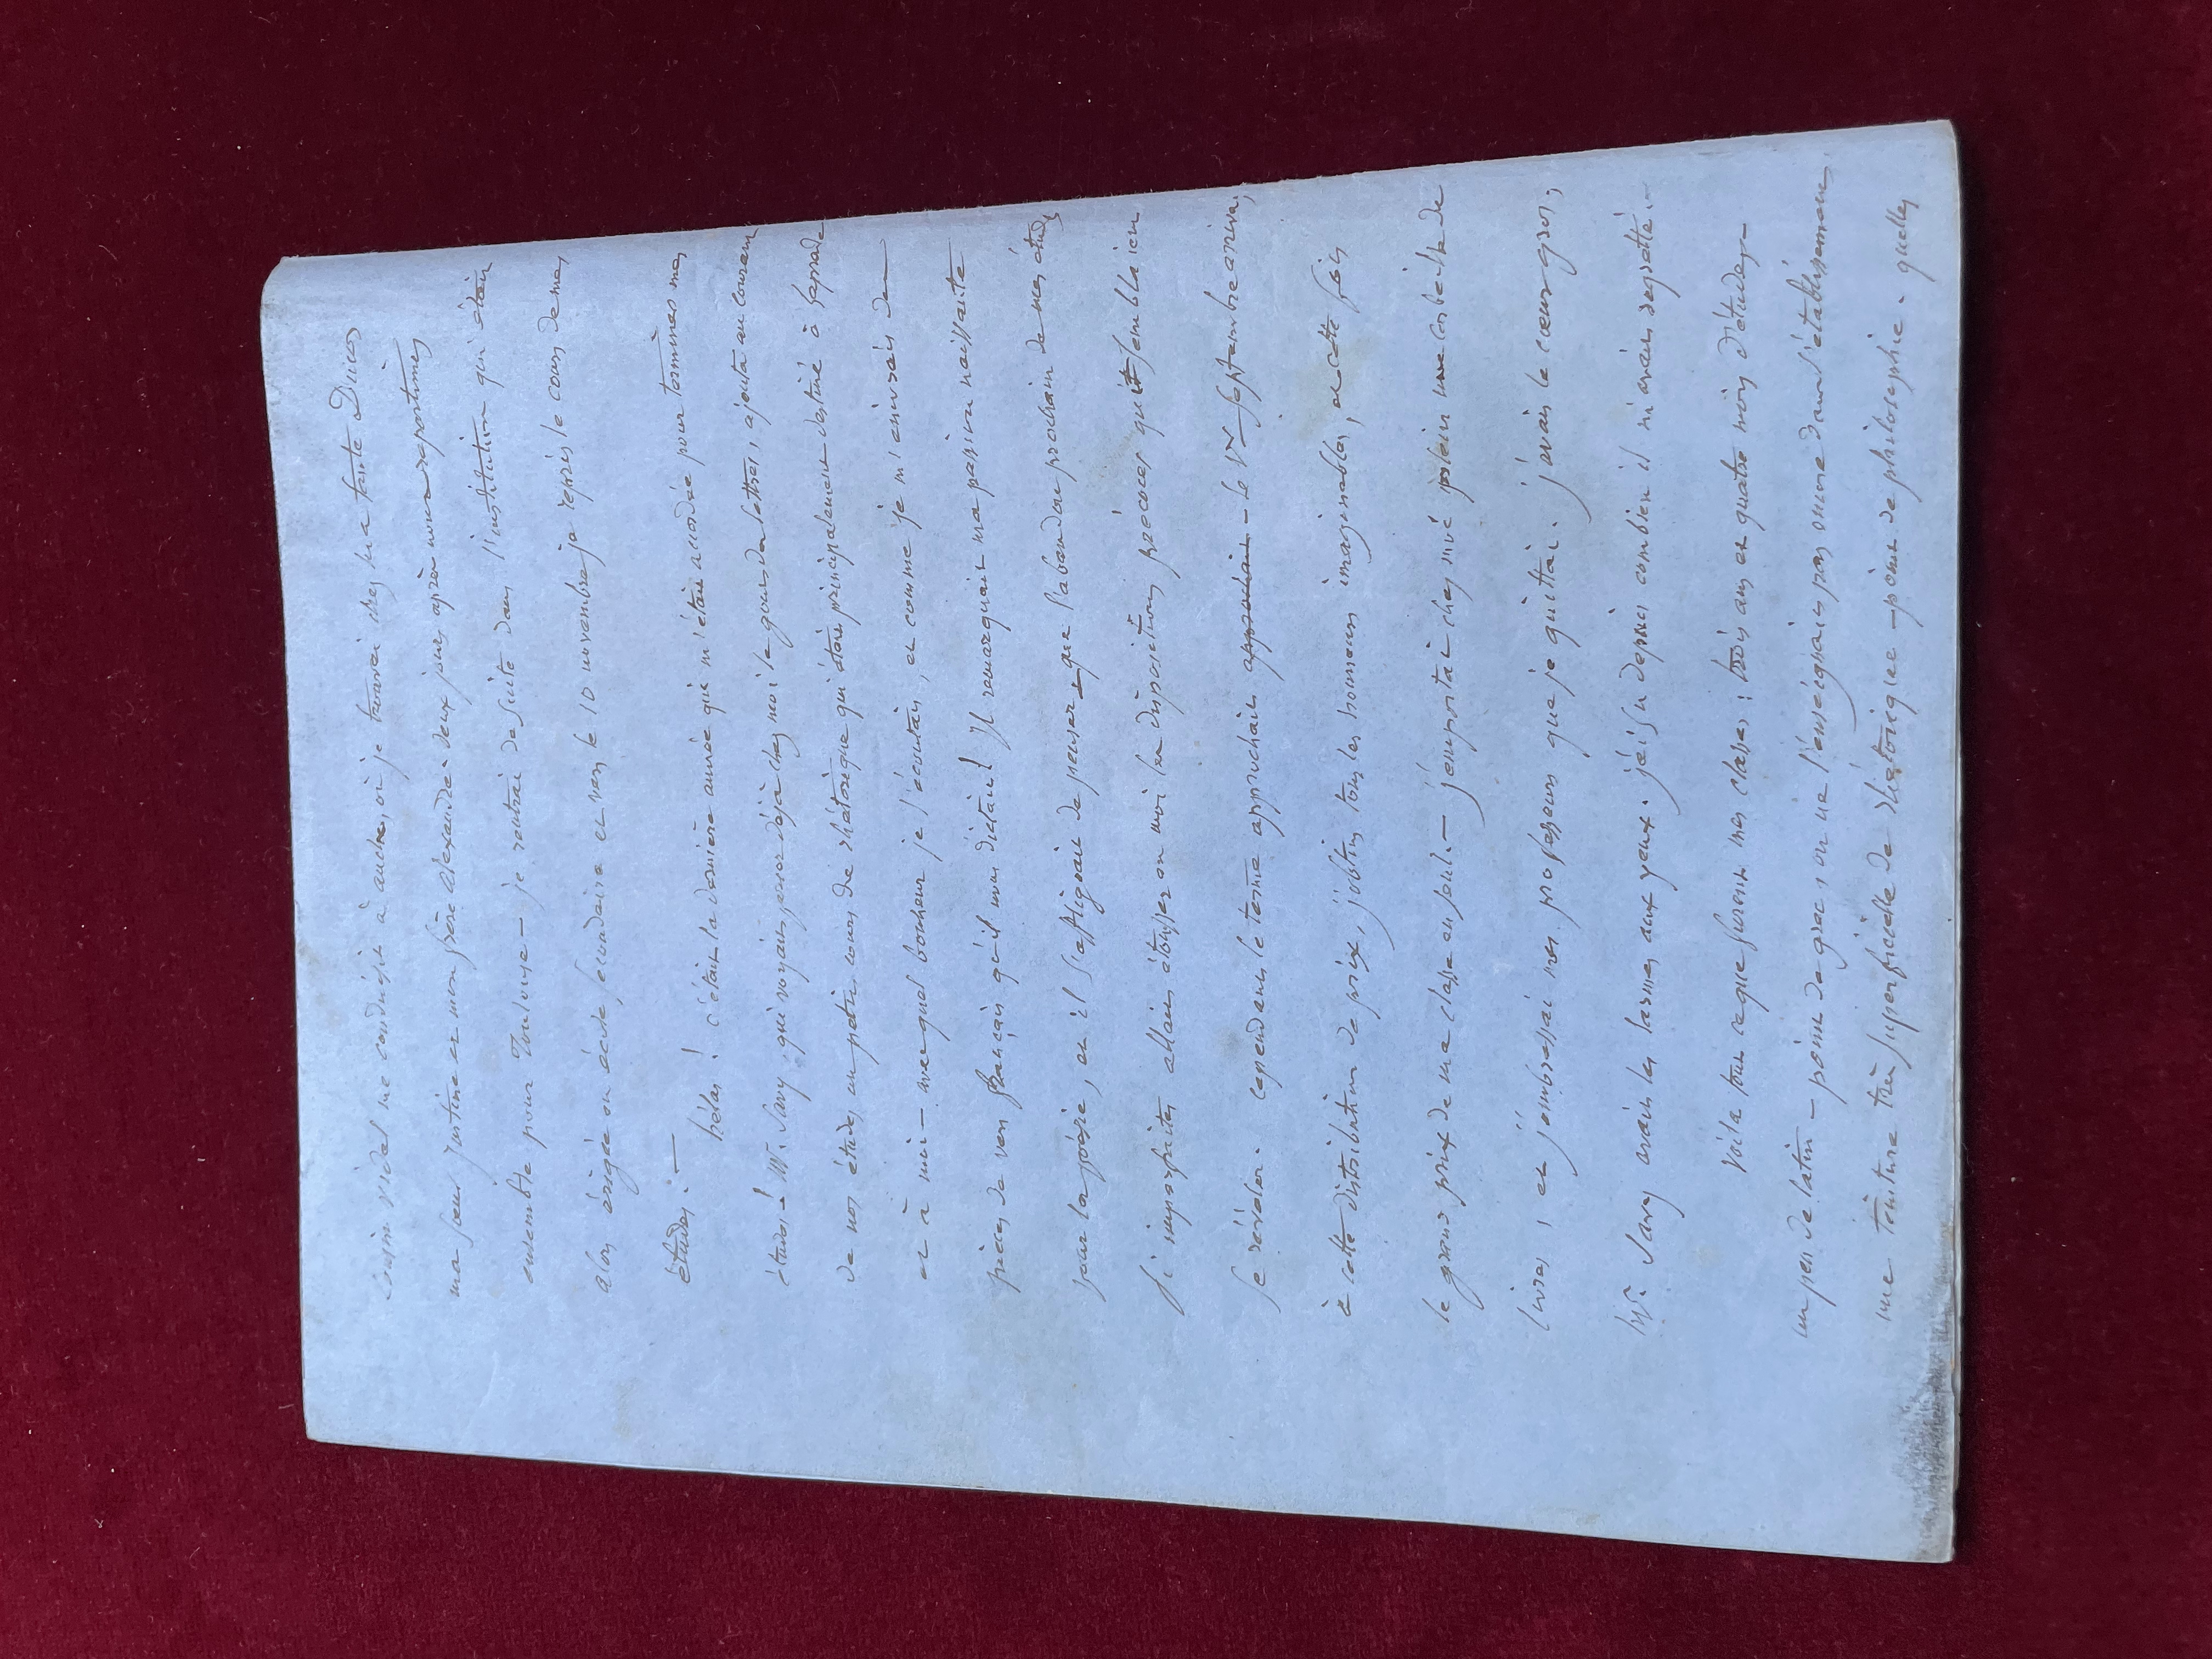 cousin vidal me conduisit à auch, où je trouvai chez ma tante Ducos
ma sœur Justine et mon frère alexandre. deux jours après nous repartimes
ensemble pour Toulouse — je rentrai de suite dans l'institution qui était
alors érigée en école secondaire et vers le 10 novembre je repris le cours de mes
études. —
hélas ! c'était la dernière année qui m'était accordée pour terminer mes
études ! Mr. Savy, qui voyait percer déjà chez moi le gout des lettres, ajouta au courant
de nos études un petit cours de rhétorique qui était principalement destiné à
et à moi — avec quel bonheur je l'écoutais, et comme je m'enivrais de
pièces de vers français qu'il nous dictait ! Il remarquait ma passion naissante
pour la poésie, et il s'affligeait de penser que l'abandon prochain de mes études
si imparfaites allait étouffer en moi les dispositions précoces qui semblaient
se révéler. cependant le terme approchait approchait – le septembre arriva,
à cette distribution de prix, j'obtins tous les honneurs imaginables, et cette fois
le grand prix de ma classe en soul. — j'emportai chez moi plein une corbeille de
livres, et j'embrassai mes professeurs que je quittai. j'avais le cœur gros,
Mr. Savy avait les larmes aux yeux. j'ai su depuis combien il m'avait regretté. —
voila tout ce que furent mes classes : trois ans et quatre mois d'études —
un peu de latin — point de grec, on ne l'enseignait pas même dans l'établissement,
une teinture très superficielle de rhétorique — point de philosophie. quelles